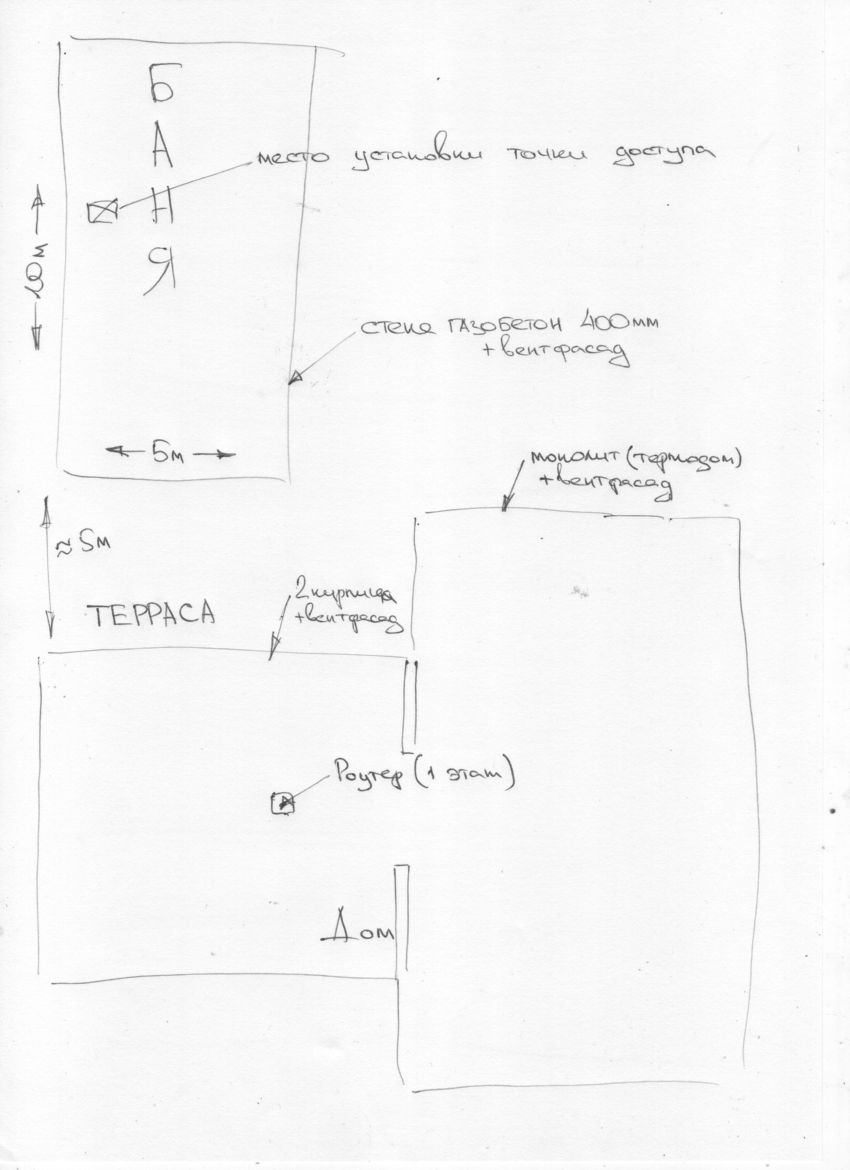 БАНЯ
место установки точки доступа
10м
стена газобетон 400мм
+вентфасад
5м
монолит (термодом)
+вентфасад
≈5м
2 кирпича
+вентфасад
ТЕРРАСА
Роутер (1 этаж)
Дом